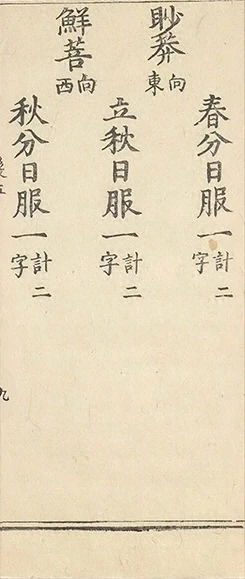 春分日服一計二字
眇莾向東
立秋日服一計二字
鮮菩向西
秋分日服一計二字
九